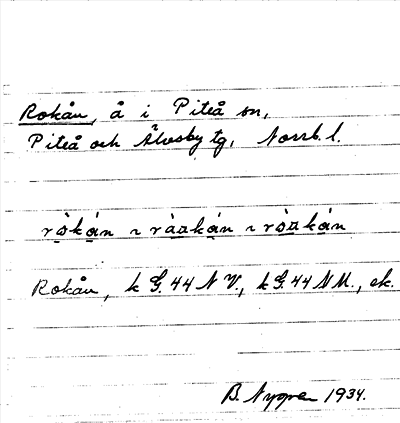 Rokån, å i Piteå sn,
Piteå och Älvsby tg, Norrb. l.
rò̱ká̱n ~ rà̱a̱ká̱n ~ rò̱a̱ká̱n
Rokån, k G. 44 N V., k G. 44 N M., ek.
B. Nygren 1934.